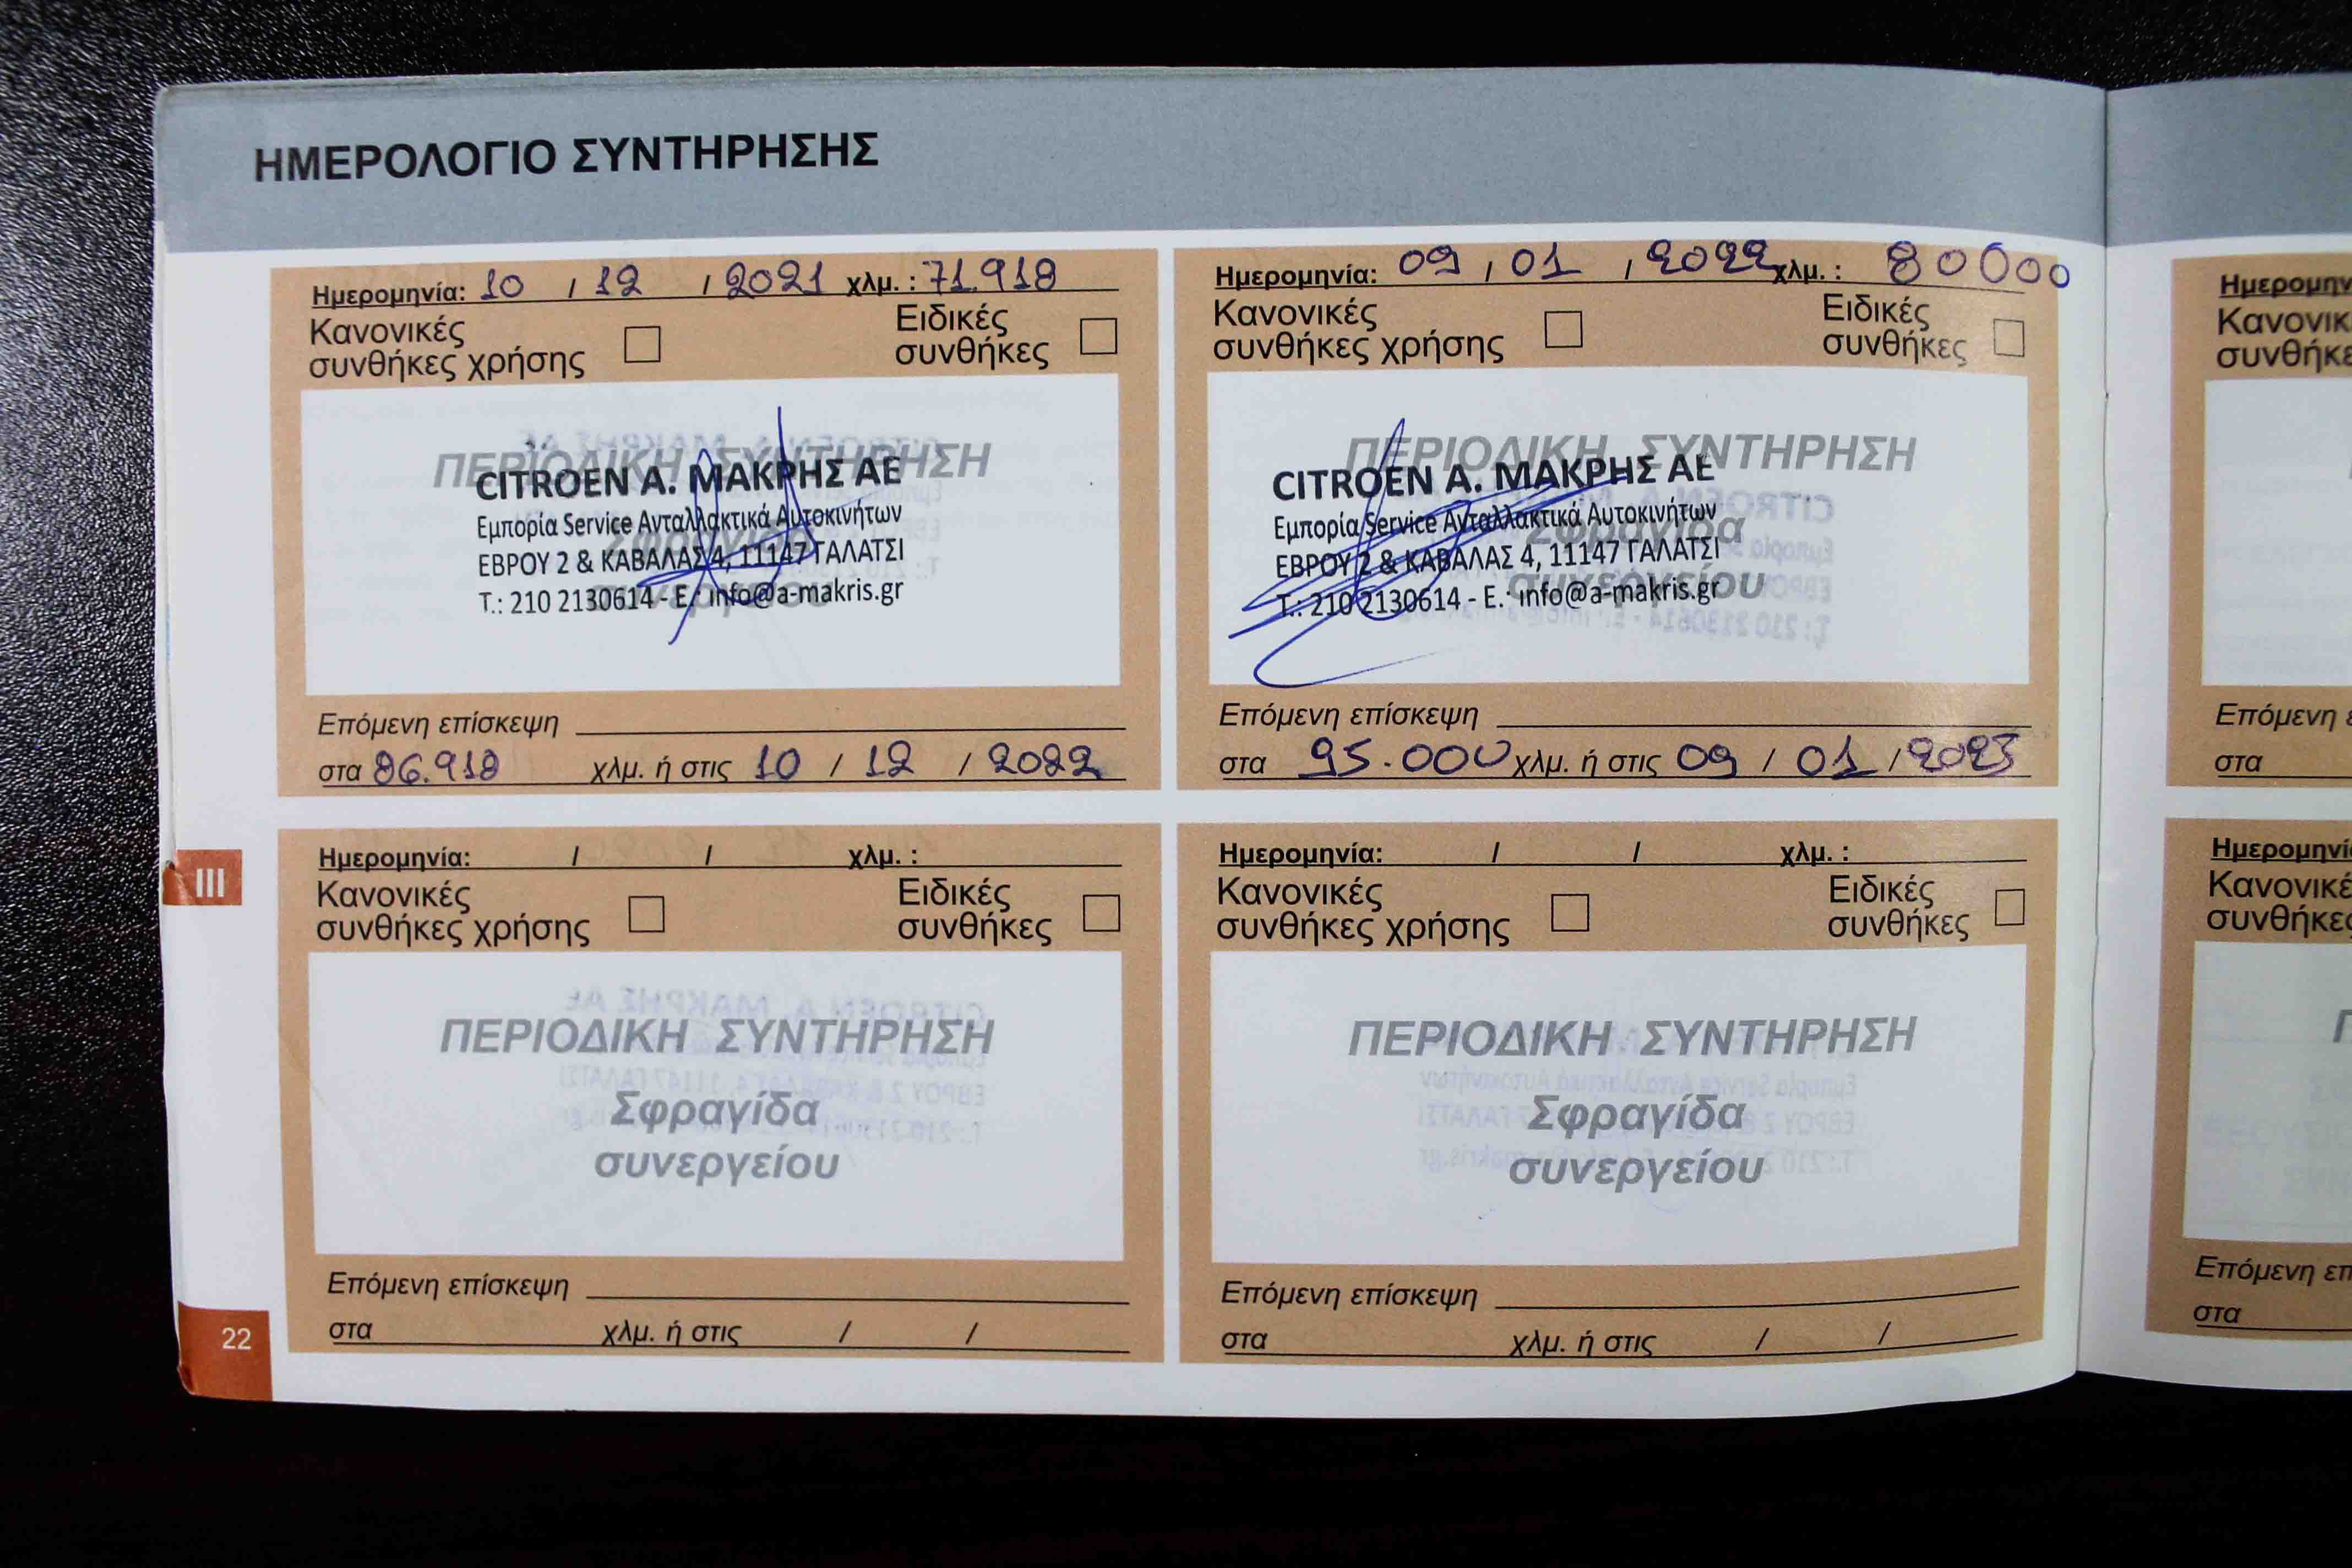 ΗΜΕΡΟΛΟΓΙΟ ΣΥΝΤΗΡΗΣΗΣ
Ημερομηνία: 10 / 12 / 2021 χλμ. : 71.918
Κανονικές συνθήκες χρήσης
Ειδικές συνθήκες
ΠΕΡΙΟΔΙΚΗ ΣΥΝΤΗΡΗΣΗ
Σφραγίδα
συνεργείου
CITROEN Α. ΜΑΚΡΗΣ ΑΕ
Εμπορία Service Ανταλλακτικά Αυτοκινήτων
ΕΒΡΟΥ 2 & ΚΑΒΑΛΑΣ 4, 11147 ΓΑΛΑΤΣΙ
Τ.: 210 2130614 - E.: info@a-makris.gr
Επόμενη επίσκεψη
στα 86.918 χλμ. ή στις 10 / 12 / 2022
Ημερομηνία: 09 / 01 / 2022 χλμ. : 80000
Κανονικές συνθήκες χρήσης
Ειδικές συνθήκες
ΠΕΡΙΟΔΙΚΗ ΣΥΝΤΗΡΗΣΗ
Σφραγίδα
συνεργείου
CITROEN Α. ΜΑΚΡΗΣ ΑΕ
Εμπορία Service Ανταλλακτικά Αυτοκινήτων
ΕΒΡΟΥ 2 & ΚΑΒΑΛΑΣ 4, 11147 ΓΑΛΑΤΣΙ
Τ.: 210 2130614 - E.: info@a-makris.gr
Επόμενη επίσκεψη
στα 95.000 χλμ. ή στις 09 / 01 / 2023
Ημερομηνία: / / χλμ. :
Κανονικές συνθήκες χρήσης
Ειδικές συνθήκες
ΠΕΡΙΟΔΙΚΗ ΣΥΝΤΗΡΗΣΗ
Σφραγίδα
συνεργείου
Επόμενη επίσκεψη
στα χλμ. ή στις / /
Ημερομηνία: / / χλμ. :
Κανονικές συνθήκες χρήσης
Ειδικές συνθήκες
ΠΕΡΙΟΔΙΚΗ ΣΥΝΤΗΡΗΣΗ
Σφραγίδα
συνεργείου
Επόμενη επίσκεψη
στα χλμ. ή στις / /
III
22
Επόμενη
στα
Επόμενη
στα